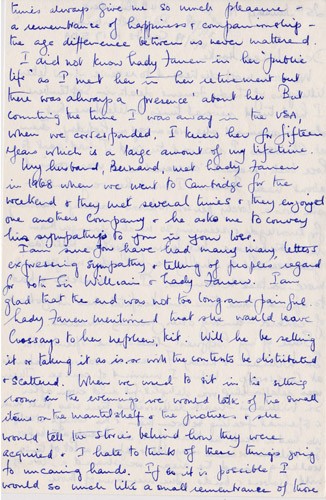 times always give me so much pleasure -
a remembrance of happiness & companionship -
the age difference between us never mattered.
I did not know Lady Fanen in her 'public
life' as I met her in her retirement but
there was always a 'presence' about her. But
counting the time I was away in the USA,
when we corresponded, I knew her for fifteen
years which is a large amount of my lifetime.
My husband, Bernard, met Lady Fanen
in 1968 when we went to Cambridge for the
weekend & they met several times & they enjoyed
one anothers company & he asks me to convey
his sympathy to you in your loss.
I am sure you have had many many letters
expressing sympathy & telling of peoples regard
for both Sir William & Lady Fanen. I am
glad that the end was not too long and painful.
Lady Fanen mentioned that she would leave
to her nephew, Kit. Will he be selling
it or taking it as is or will the contents be distributed
& scattered. When we used to sit in the sitting
room in the evenings we would talk of the small
items on the mantelshelf & the pictures & she
would tell the stories behind how they were
acquired & I hate to think of these things going
to uncaring hands. If it is possible I
would so much like a small remembrance of those